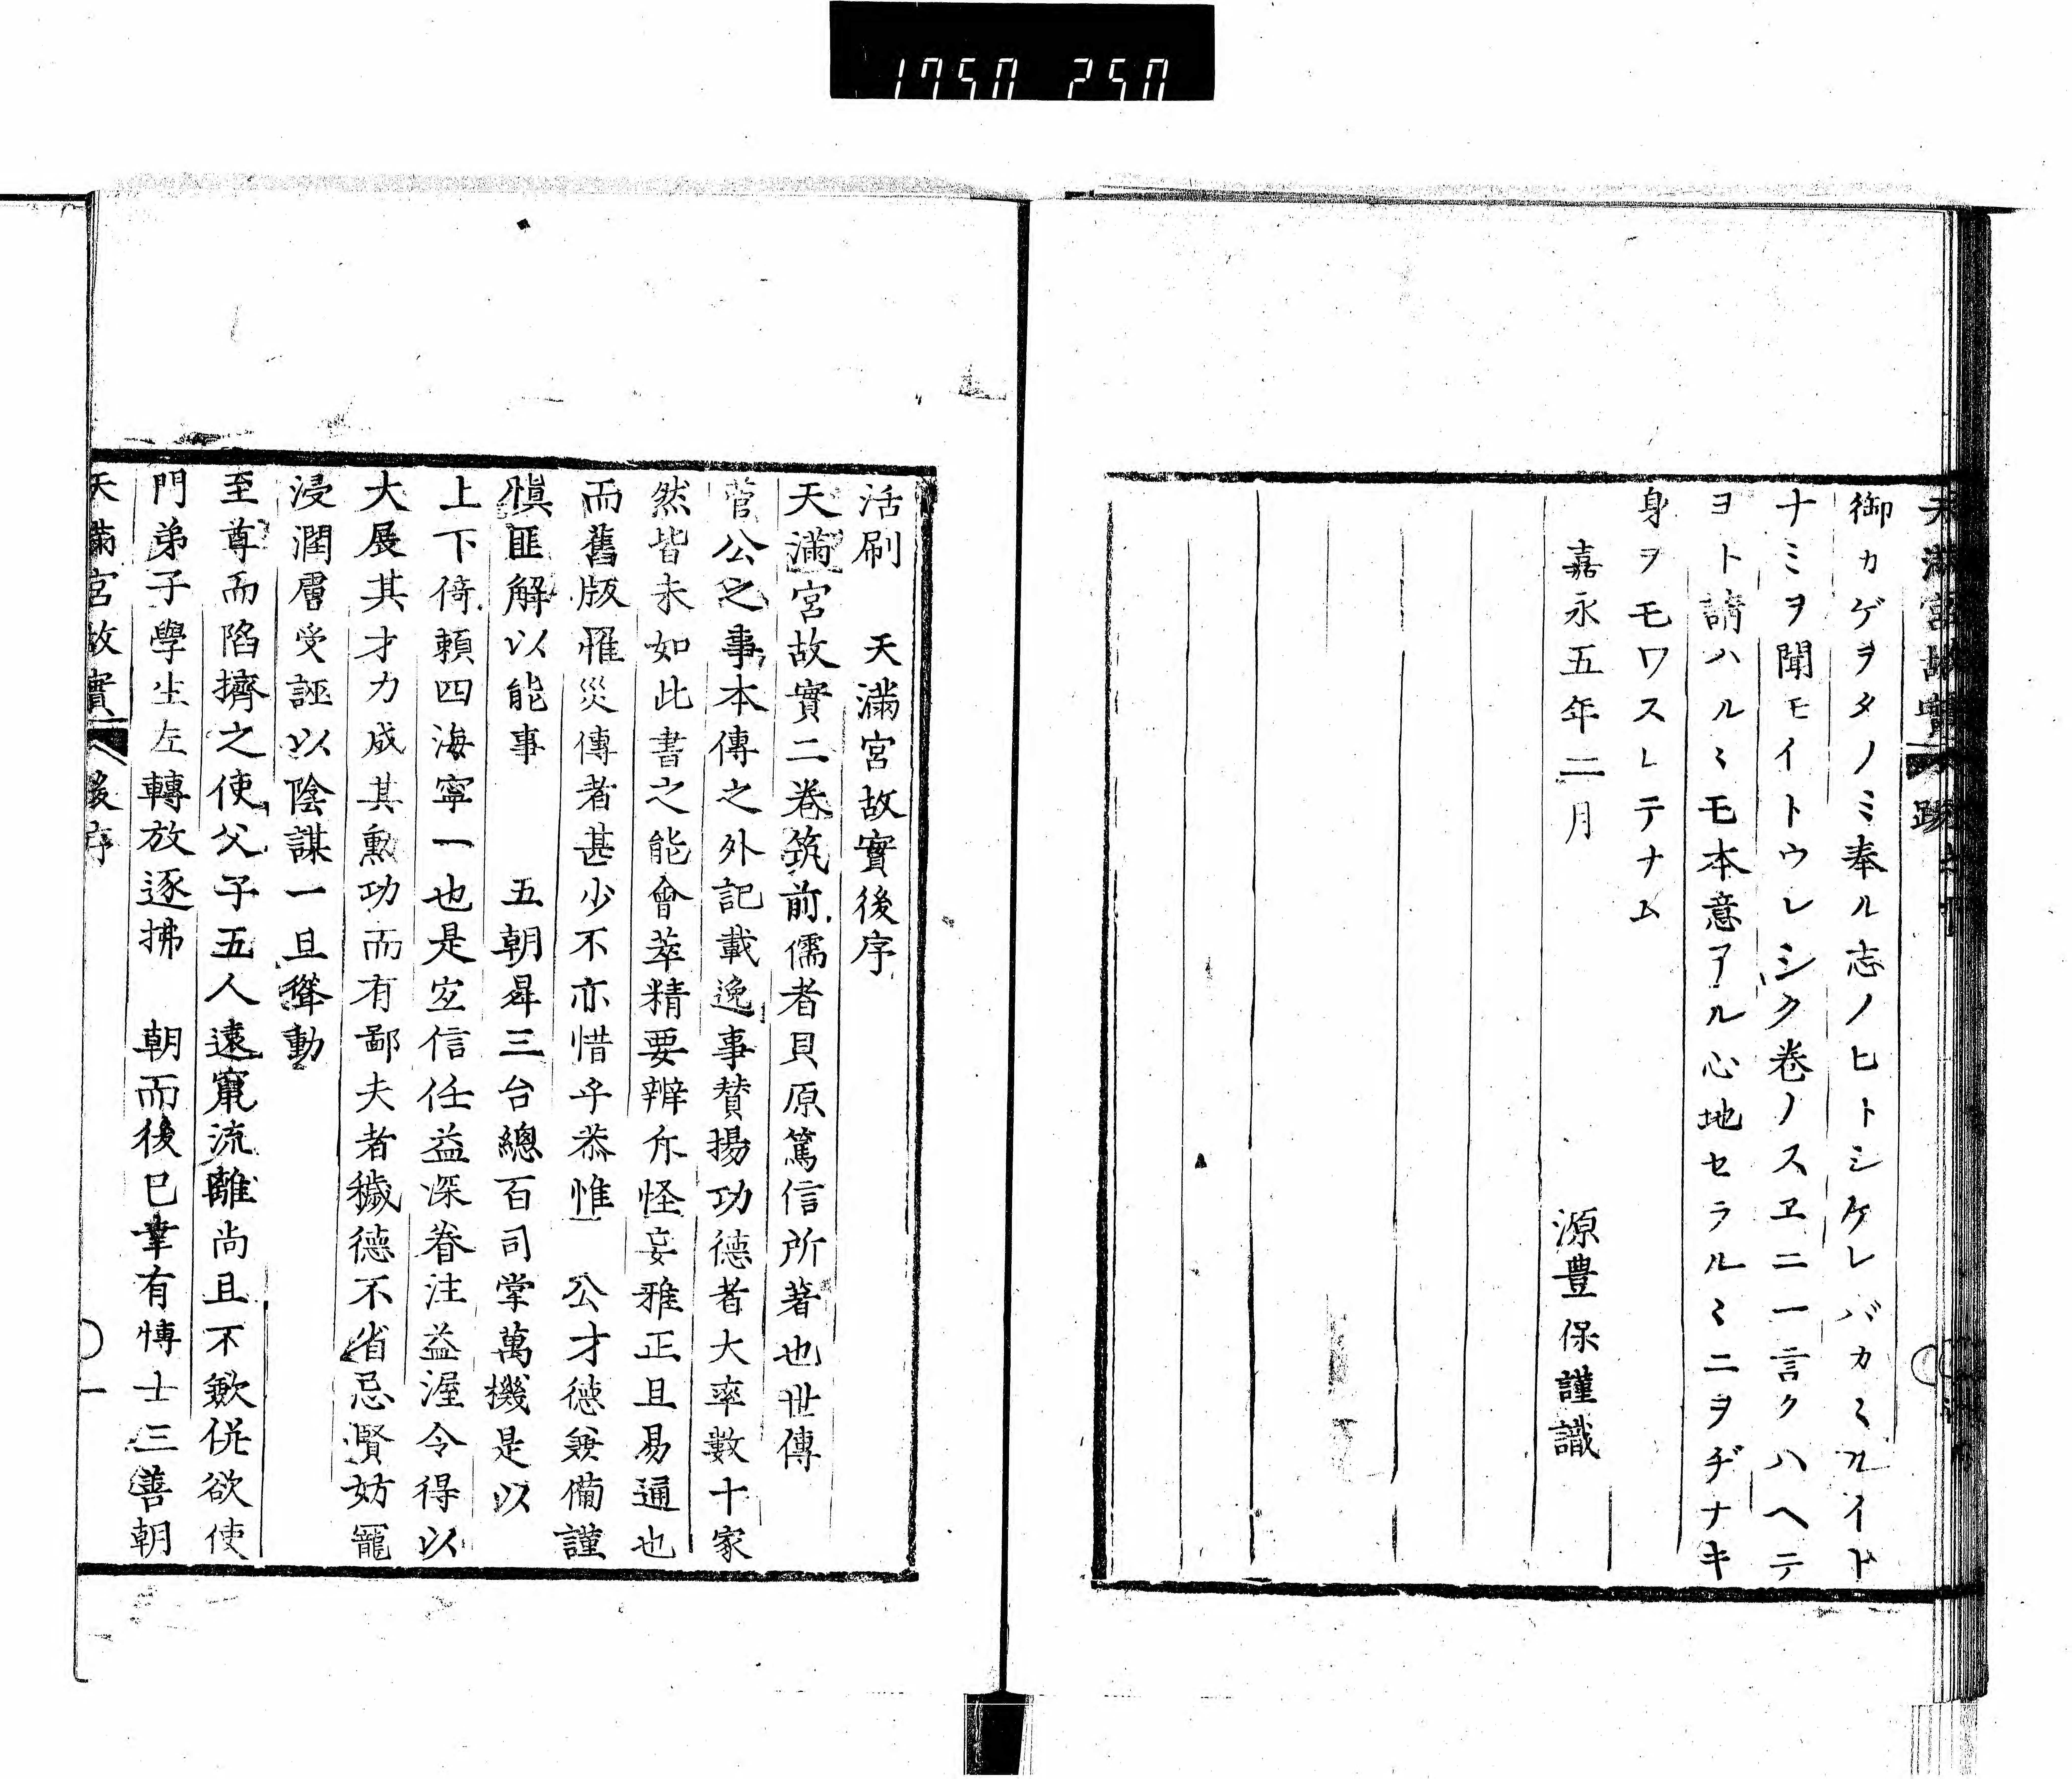 1750 250
御カゲヲタノミ奉ル志ノヒトシケレバカミカイド
ナミヲ聞モイトウレシク卷ノスヱニ一言クハヘテ
ヨト請ハルヽモ本意アル心地セラルヽニヲヂナキ
身ヲモワスレテナム
嘉永五年二月
源豊保謹識
活刷 天滿宮故實後序
天滿宮故實二卷筑前儒者貝原篤信所著也世傳
菅公之事本傳之外記載逸事賛揚功德者大率數十家
然皆未如此書之能會萃精要辨斥怪妄雅正且易通也
而舊版罹災傳者甚少不亦惜乎恭惟 公才德兼備謹
愼匪解以能事 五朝昇三台總百司掌萬機是以
上下倚頼四海寧一也是宜信任益深眷注益渥令得以
大展其才力成其勲功而有鄙夫者穢德不省忌賢妨寵
浸潤膚受誣以陰謀一旦聳動
至尊而陷擠之使父子五人遠竄流離尚且不歉俛欲使
門弟子學生左轉放逐拂 朝而後已幸有博士三善朝
天滿宮故實 後序
一